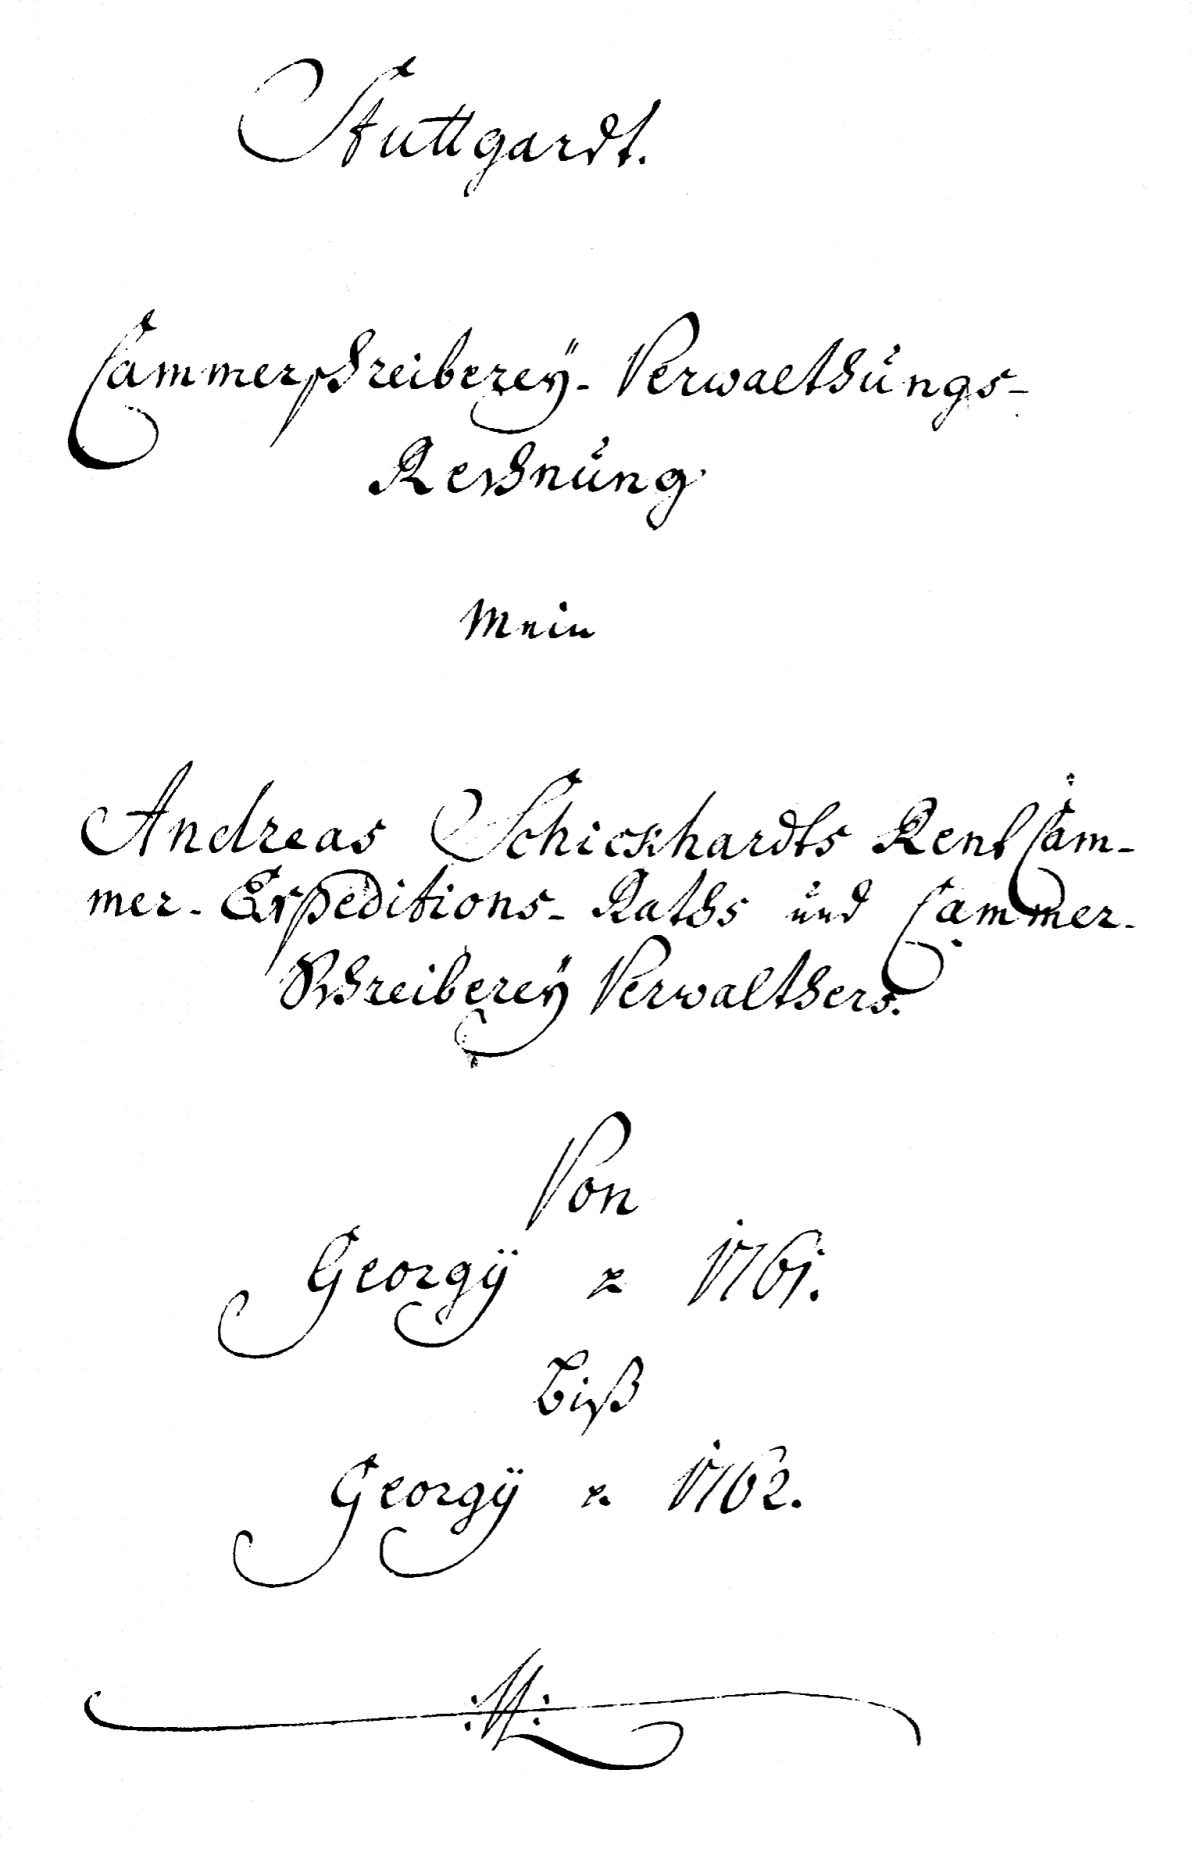 Stuttgardt.
Cammerschreiberey-Verwalthungs-
Rechnung
Mein
Andreas Schickhardts Rent Cam-
mer-Expeditions-Raths und Cammer-
Schreiberey Verwalthers.
Von
Georgÿ 1761.
biß
Georgÿ 1762.